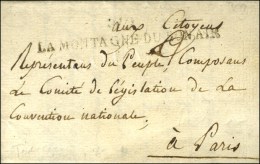 aux Citoyens
LA MONTAGNE DU BON AIR
Représentans du Peuple Composans
Le Comité de Législation de La
Convention nationale,
à Paris